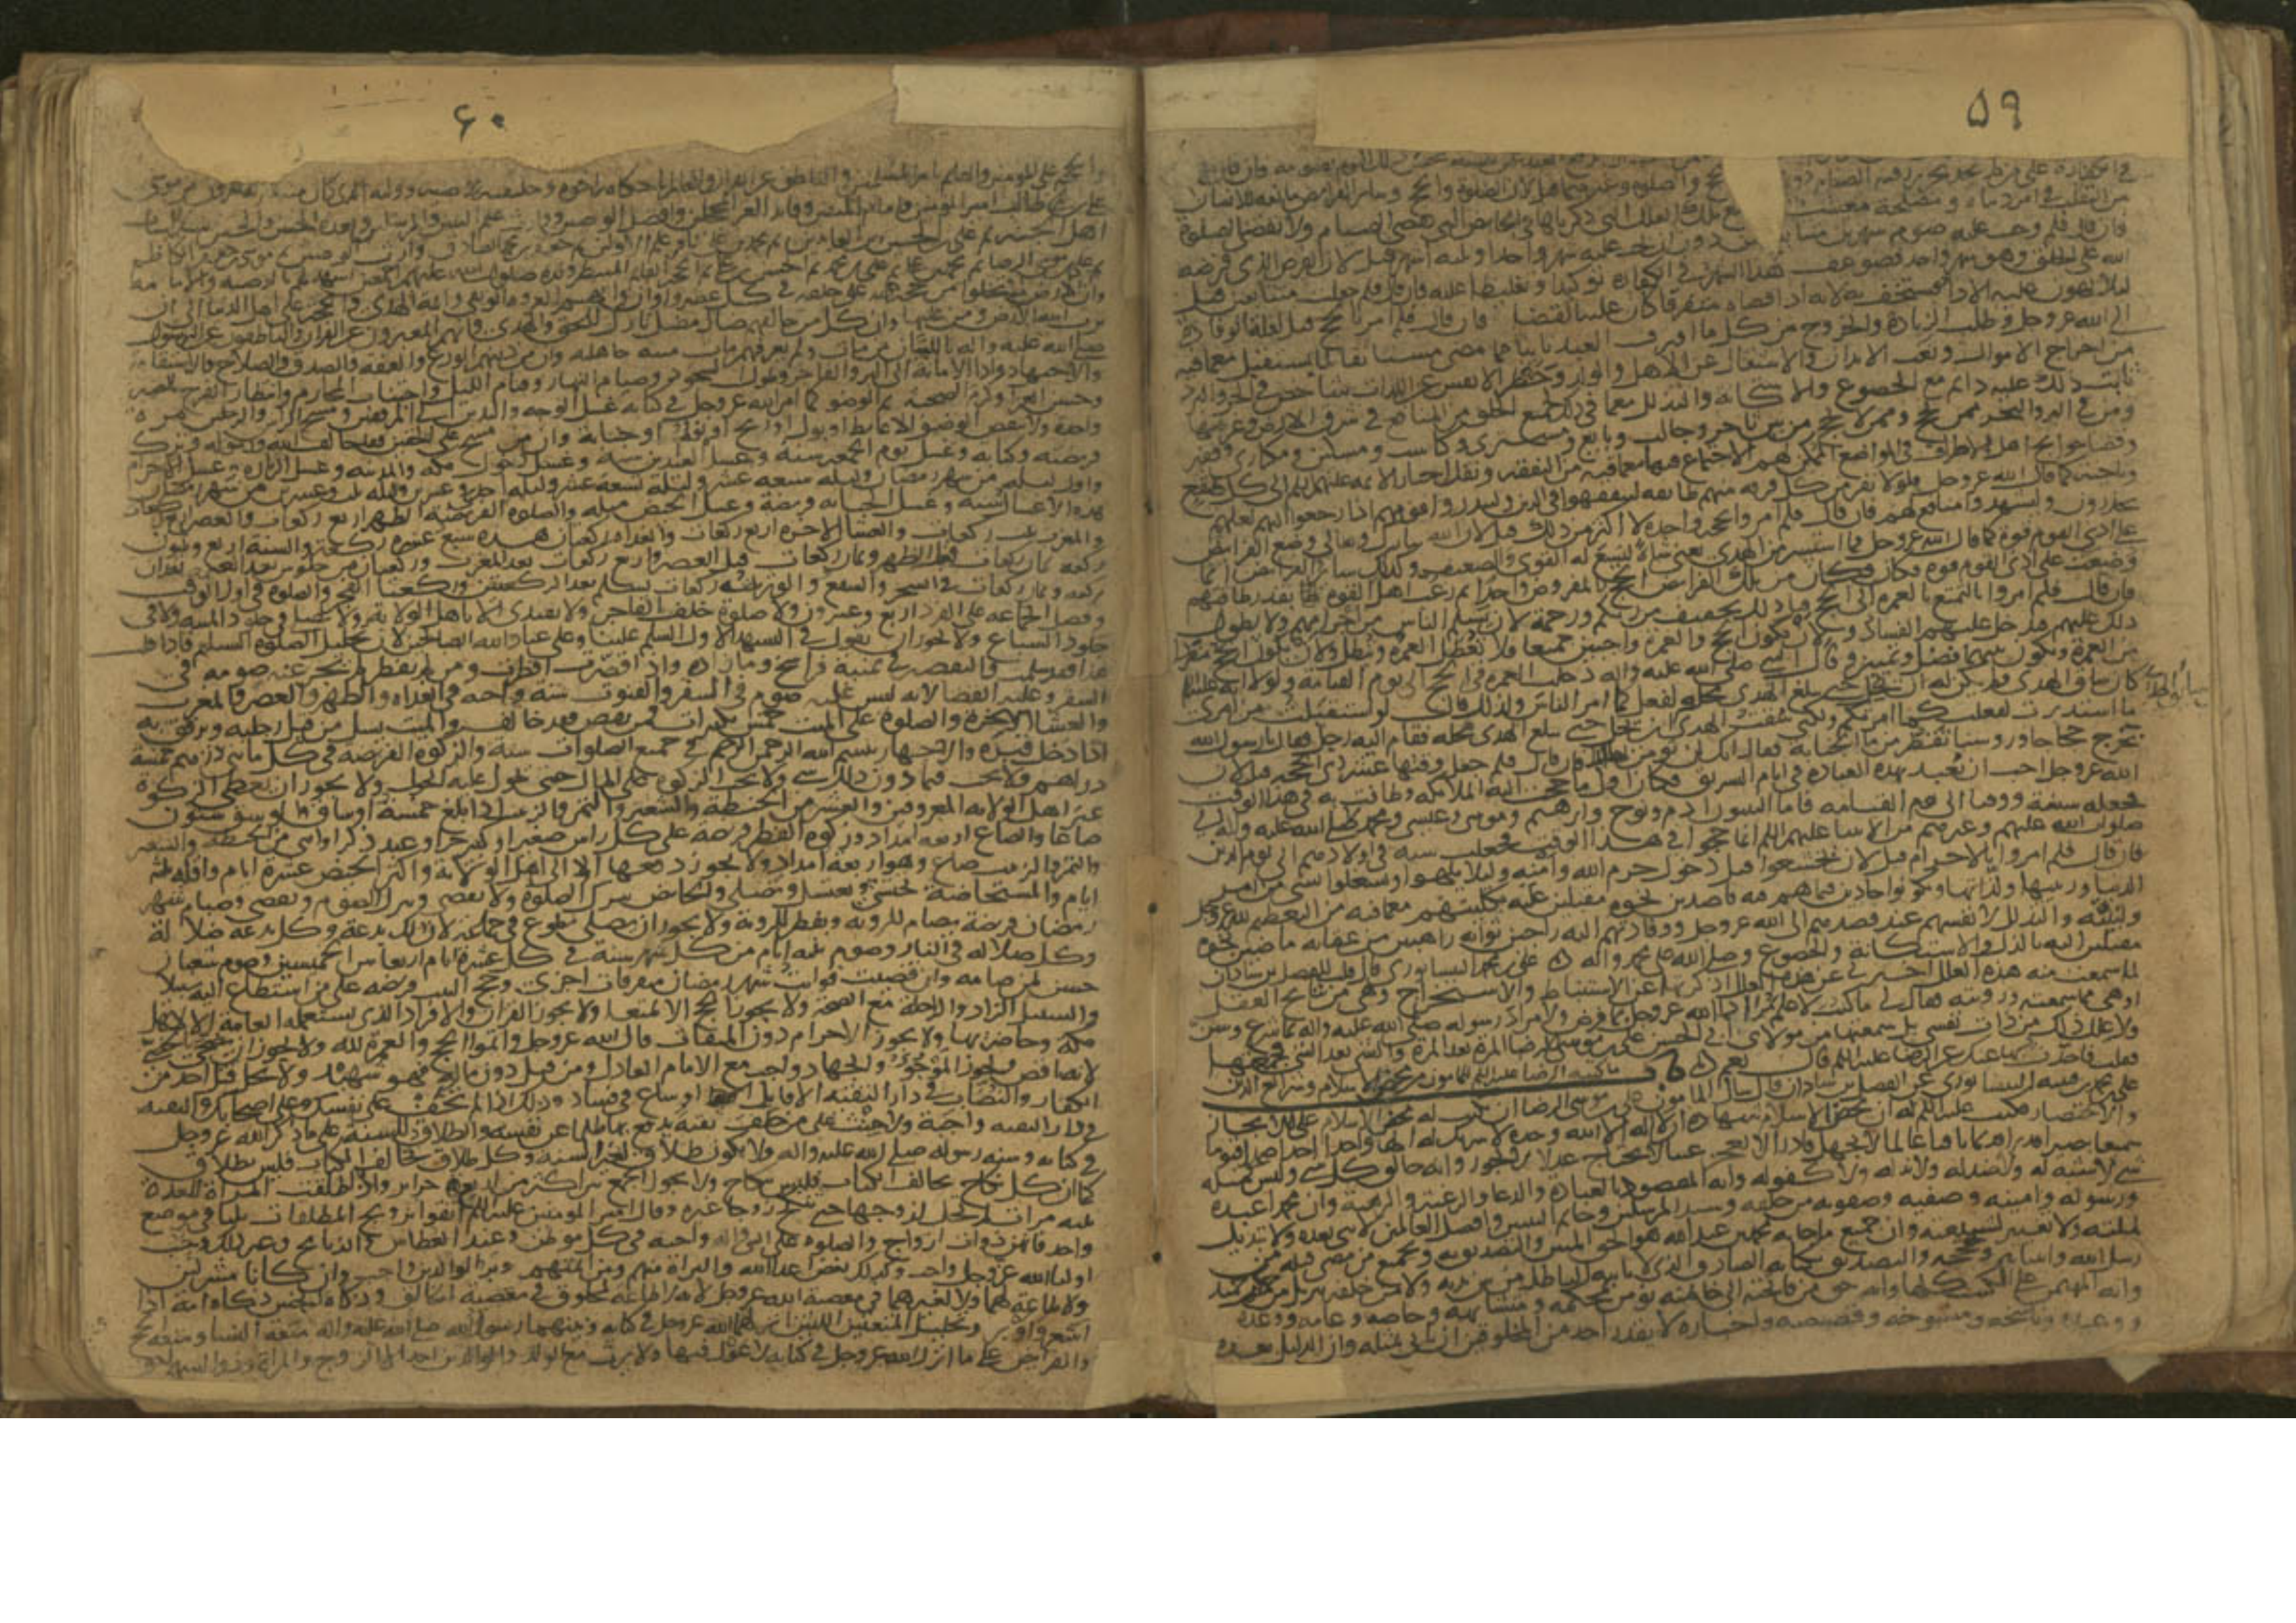 ۵۹
على الخلق وهو شهر واحد فضوعف هذا الشهر في الكفارة توكيدا وتغليظا عليه فان قال فلم جعلت متتابعين قيل
لئلا يهون عليه الاداء فيستخف به لانه اذا قضاه متفرقا كان عليه القضا فان قال فلم امر بالحج قيل لعلة الوفادة
الى الله عز وجل وطلب الزيادة والخروج من كل ما اقترف العبد تايبا مما مضى مستانفا لما يستقبل مع ما فيه
من اخراج الاموال وتعب الابدان والاشتغال عن الاهل والولد وحظر الانفس عن اللذات شاخص في الحر والبرد
ثابت ذلك عليه دايم مع الخضوع والاستكانة والتذلل مع ما في ذلك لجميع الخلق من المنافع في شرق الارض وغربها
ومن في البر والبحر ممن يحج وممن لا يحج من بين تاجر وجالب وبايع ومشتري وكاسب ومسكين ومكاري وفقير
وقضا حوايج اهل الاطراف في المواضع الممكن لهم الاجتماع فيها مع ما فيه من التفقه ونقل اخبار الايمة عليهم السلم الى كل صقع
وناحية كما قال الله عز وجل فلولا نفر من كل فرقة منهم طايفة ليتفقهوا في الدين ولينذروا قومهم اذا رجعوا اليهم لعلهم
يحذرون وليشهدوا منافع لهم فان قال فلم امروا بحجة واحدة لا اكثر من ذلك قيل لان الله تبارك وتعالى وضع الفرايض
على ادنى القوم قوة كما قال الله عز وجل فما استيسر من الهدي يعني شاة ليسع له القوي والضعيف وكذلك ساير الفرايض انما
وضعت على ادنى القوم قوة فكان من تلك الفرايض الحج المفروض واحدا ثم رغب اهل القوة بقدر طاقتهم
فان قال فلم امروا بالتمتع بالعمرة الى الحج قيل ذلك تخفيف من ربكم ورحمة لان يسلم الناس من احرامهم ولا يطول
ذلك عليهم فيدخل عليهم الفساد ولان يكون الحج والعمرة واجبين جميعا فلا تعطل العمرة وتبطل ولان يكون الحج مفردا
من العمرة ويكون بينهما فصل وتمييز وقال النبي صلى الله عليه واله دخلت العمرة في الحج الى يوم القيامة ولولا انه عليه السلم
كان ساق الهدي ولم يكن له ان يحل حتى يبلغ الهدي محله لفعل كما امر الناس ولذلك قال لو استقبلت من امري
ما استدبرت لفعلت كما امرتكم ولكني سقت الهدي وليس لسايق الهدي ان يحل حتى يبلغ الهدي محله فقام اليه رجل فقال يا رسول الله
نخرج حجاجا ورؤسنا تقطر من ما الجنابة فقال انك لن تؤمن بهذا فان قال فلم جعل وقتها عشر ذي الحجة قيل لان
الله عز وجل احب ان يعبد بهذه العبادة في ايام التشريق فكان اول ما حجت اليه الملايكة وطافت به في هذا الوقت
فجعله سنة ووقتا الى يوم القيامة فاما النبيون ادم ونوح وابرهيم وموسى وعيسى ومحمد صلى الله عليه واله
صلوات الله عليهم وغيرهم من الانبيا عليهم السلم انما حجوا في هذا الوقت فجعلت سنة في اولادهم الى يوم الدين
فان قال فلم امروا بالاحرام قيل لان يخشعوا قبل دخول حرم الله وامنه ولئلا يلهوا ويشتغلوا بشي من امر
الدنيا وزينتها ولذاتها ويكونوا جادين فيما هم فيه قاصدين نحوه مقبلين عليه بكليتهم مع ما فيه من التعظيم لله عز وجل
ولبيته والتذلل لانفسهم عند قصدهم الى الله عز وجل ووفادتهم اليه راجين ثوابه راهبين من عقابه ماضين نحوه
مقبلين اليه بالذل والاستكانة والخضوع وصلى الله على محمد واله
علي بن محمد النيسابوري قال قلت للفضل بن شاذان
لما سمعت منه هذه العلل اخبرني عن هذه العلل التي ذكرتها عن الاستنباط والاستخراج وهي من نتايج العقل
او هي مما سمعته ورويته فقال لي ما كنت لاعلم مراد الله عز وجل بما فرض ولا مراد رسوله صلى الله عليه واله بما شرع وسن
ولا علل ذلك من ذات نفسي بل سمعتها من مولاي ابي الحسن علي بن موسى الرضا المرة بعد المرة والشي بعد الشي فجمعتها
فقلت فاحدث بها عنك عن الرضا عليه السلم قال نعم
ما كتبه الرضا عليه السلم للمامون من محض الاسلام وشرايع الدين
علي بن محمد بن قتيبة النيسابوري عن الفضل بن شاذان قال سال المامون علي بن موسى الرضا ان يكتب له محض الاسلام على الايجاز
والاختصار فكتب عليه السلم له ان محض الاسلام شهادة ان لا اله الا الله وحده لا شريك له الها واحدا احدا صمدا قيوما
سميعا بصيرا قديرا قديما باقيا عالما لا يجهل قادرا لا يعجز غنيا لا يحتاج عدلا لا يجور وانه خالق كل شي وليس كمثله
شي لا شبه له ولا ضد له ولا ند له ولا كفو له وانه المقصود بالعبادة والدعا والرغبة والرهبة وان محمدا عبده
ورسوله وامينه وصفيه وصفوته من خلقه وسيد المرسلين وخاتم النبيين وافضل العالمين لا نبي بعده ولا تبديل
لملته ولا تغيير لشريعته وان جميع ما جا به محمد بن عبد الله هو الحق المبين والتصديق به وبجميع من مضى قبله من
رسل الله وانبيايه وحججه والتصديق بكتابه الصادق الذي لا ياتيه الباطل من بين يديه ولا من خلفه تنزيل من حكيم حميد
وانه المهيمن على الكتب كلها وانه حق من فاتحته الى خاتمته نؤمن بمحكمه ومتشابهه وخاصه وعامه ووعده
ووعيده وناسخه ومنسوخه وقصصه واخباره لا يقدر احد من المخلوقين ان ياتي بمثله وان الدليل بعده
۶۰
والحجة على المؤمنين والقايم بامر المسلمين والناطق عن القران والعالم باحكامه اخوه وخليفته ووصيه ووليه الذي كان منه بمنزلة هرون من موسى
علي بن ابي طالب امير المؤمنين وامام المتقين وقايد الغر المحجلين وافضل الوصيين ووارث علم النبيين والمرسلين وبعده الحسن والحسين سيدا شباب
اهل الجنة ثم علي بن الحسين زين العابدين ثم محمد بن علي باقر علم الاولين ثم جعفر بن محمد الصادق وارث علم الوصيين ثم موسى بن جعفر الكاظم
ثم علي بن موسى الرضا ثم محمد بن علي ثم علي بن محمد ثم الحسن بن علي ثم الحجة القايم المنتظر ولده صلوات الله عليهم اجمعين اشهد لهم بالوصية والامامة
وان الارض لا تخلو من حجة لله على خلقه في كل عصر واوان وانهم العروة الوثقى وايمة الهدى والحجة على اهل الدنيا الى ان
يرث الله الارض ومن عليها وان كل من خالفهم ضال مضل تارك للحق والهدى وانهم المعبرون عن القران والناطقون عن الرسول
صلى الله عليه واله بالبيان من مات ولم يعرفهم مات ميتة جاهلية وان من دينهم الورع والعفة والصدق والصلاح والاستقامة
والاجتهاد واداء الامانة الى البر والفاجر وطول السجود وصيام النهار وقيام الليل واجتناب المحارم وانتظار الفرج بالصبر
وحسن العزا وكرم الصحبة ثم الوضو كما امر الله عز وجل في كتابه غسل الوجه واليدين الى المرفقين ومسح الراس والرجلين مرة
واحدة ولا ينقض الوضو الا غايط او بول او ريح او نوم او جنابة وان من مسح على الخفين فقد خالف الله ورسوله وترك
فريضته وكتابه وغسل يوم الجمعة سنة وغسل العيدين سنة وغسل دخول مكة والمدينة وغسل الزيارة وغسل الاحرام
واول ليلة من شهر رمضان وليلة سبعة عشر وليلة تسعة عشر وليلة احدى وعشرين وليلة ثلث وعشرين من شهر رمضان
هذه الاغسال سنة وغسل الجنابة فريضة وغسل الحيض مثله والصلوة الفريضة الظهر اربع ركعات والعصر اربع ركعات
والمغرب ثلث ركعات والعشا الاخرة اربع ركعات والغداة ركعتان هذه سبع عشرة ركعة والسنة اربع وثلثون
ركعة ثمان ركعات قبل الظهر وثمان ركعات قبل العصر واربع ركعات بعد المغرب وركعتان من جلوس بعد العتمة تعدان
ركعة وثمان ركعات في السحر والشفع والوتر ثلثة ركعات يسلم بعد الركعتين وركعتا الفجر والصلوة في اول الوقت
وفضل الجماعة على الفرد اربع وعشرون ولا صلوة خلف الفاجر ولا يقتدى الا باهل الولاية ولا يصلى في جلود الميتة ولا في
جلود السباع ولا يجوز ان يقول في التشهد الاول السلم علينا وعلى عباد الله الصالحين لان تحليل الصلوة التسليم فاذا قلت
هذا فقد سلمت والتقصير في ثمانية فراسخ وما زاد واذا قصرت افطرت ومن لم يفطر لم يجز عنه صومه في
السفر وعليه القضا لانه ليس عليه صوم في السفر والقنوت سنة واجبة في الغداة والظهر والعصر والمغرب
والعشا الاخرة والصلوة على الميت خمس تكبيرات فمن نقص فقد خالف والميت يسل من قبل رجليه ويرفق به
اذا دخل قبره والاجهار ببسم الله الرحمن الرحيم في جميع الصلوات سنة والزكوة الفريضة في كل مايتي درهم خمسة
دراهم ولا يجب فيما دون ذلك شي ولا تجب الزكوة على المال حتى يحول عليه الحول ولا يجوز ان يعطى الزكوة
غير اهل الولاية المعروفين والعشر من الحنطة والشعير والتمر والزبيب اذا بلغ خمسة اوساق والوسق ستون
صاعا والصاع اربعة امداد وزكوة الفطر فريضة على كل راس صغير او كبير حر او عبد ذكر او انثى من الحنطة والشعير
والتمر والزبيب صاع وهو اربعة امداد ولا يجوز دفعها الا الى اهل الولاية واكثر الحيض عشرة ايام واقله ثلثة
ايام والمستحاضة تحتشي وتغتسل وتصلي والحايض تترك الصلوة ولا تقضي وتترك الصوم وتقضي وصيام شهر
رمضان فريضة يصام للروية ويفطر للروية ولا يجوز ان يصلى تطوع في جماعة لان ذلك بدعة وكل بدعة ضلالة
وكل ضلالة في النار وصوم ثلثة ايام من كل شهر سنة في كل عشرة ايام اربعا بين خميسين وصوم شعبان
حسن لمن صامه وان قضيت فوايت شهر رمضان متفرقات اجزى وحج البيت فريضة على من استطاع اليه سبيلا
والسبيل الزاد والراحلة مع الصحة ولا يجوز الحج الا تمتعا ولا يجوز القران والافراد الذي يستعمله العامة الا لاهل
مكة وحاضريها ولا يجوز الاحرام دون الميقات قال الله عز وجل واتموا الحج والعمرة لله ولا يجوز ان يضحى بالخصي
لانه ناقص ويجوز الموجوء والجهاد واجب مع الامام العادل ومن قتل دون ماله فهو شهيد ولا يحل قتل احد من
الكفار والنصاب في دار التقية الا قاتل او ساع في فساد وذلك اذا لم تخف على نفسك وعلى اصحابك والتقية
في دار التقية واجبة ولا حنث على من حلف تقية يدفع بها ظلما عن نفسه والطلاق للسنة على ما ذكر الله عز وجل
في كتابه وسنة رسوله صلى الله عليه واله ولا يكون طلاق لغير السنة وكل طلاق خالف الكتاب فليس بطلاق
كما ان كل نكاح يخالف الكتاب فليس بنكاح ولا يجوز الجمع بين اكثر من اربع حراير واذا طلقت المراة للعدة
ثلث مرات لم تحل لزوجها حتى تنكح زوجا غيره وقال امير المؤمنين عليه السلم اتقوا تزويج المطلقات ثلثا في موضع
واحد فانهن ذوات ازواج والصلوة على النبي واله واجبة في كل موطن وعند العطاس والذبايح وغير ذلك وحب
اولياء الله عز وجل واجب وكذلك بغض اعداء الله والبراة منهم ومن ايمتهم وبر الوالدين واجب وان كانا مشركين
ولا طاعة لهما ولا لغيرهما في معصية الله عز وجل لانه لا طاعة لمخلوق في معصية الخالق وذكاة الجنين ذكاة امه اذا
اشعر واوبر وتحليل المتعتين اللتين انزلهما الله عز وجل في كتابه وسنهما رسول الله صلى الله عليه واله متعة النسا ومتعة الحج
والفرايض على ما انزل الله عز وجل في كتابه لا عول فيها ولا يرث مع الولد والوالدين احد الا الزوج والمراة وذو السهم احق